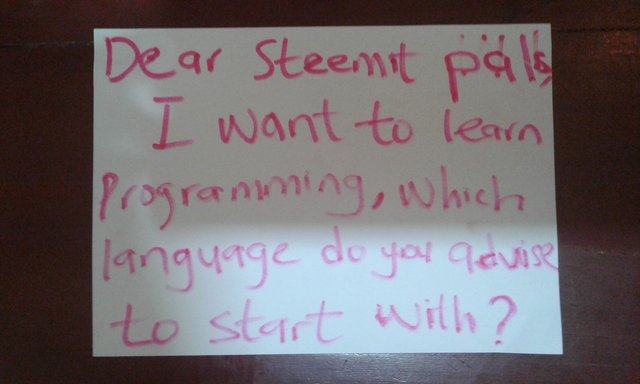 Dear Steemit pals,
I want to learn
Programming, which
language do you advise
to start with?